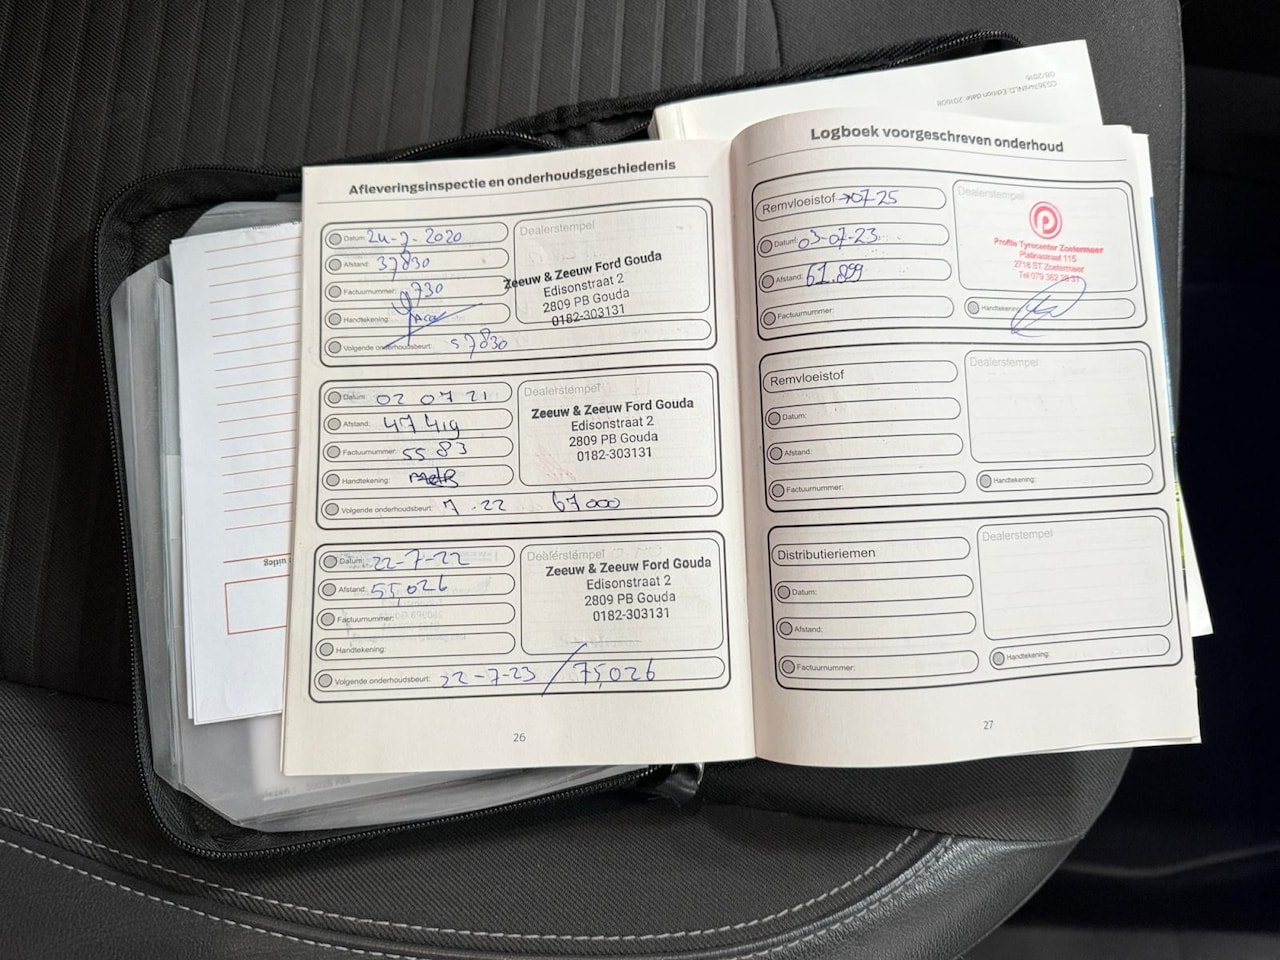 CG3674nlNLD Edition date: 201608
08/2016
Afleveringsinspectie en onderhoudsgeschiedenis
Datum: 24-7-2020
Afstand: 37830
Factuurnummer: 9730
Handtekening:
Volgende onderhoudsbeurt: 57830
Dealerstempel
Zeeuw & Zeeuw Ford Gouda
Edisonstraat 2
2809 PB Gouda
0182-303131
Datum: 02 07 21
Afstand: 47419
Factuurnummer: 5583
Handtekening:
Volgende onderhoudsbeurt: 7.22 67000
Dealerstempel
Zeeuw & Zeeuw Ford Gouda
Edisonstraat 2
2809 PB Gouda
0182-303131
Datum: 22-7-22
Afstand: 55,026
Factuurnummer:
Handtekening:
Volgende onderhoudsbeurt: 22-7-23 / 75,026
Dealerstempel
Zeeuw & Zeeuw Ford Gouda
Edisonstraat 2
2809 PB Gouda
0182-303131
26
Logboek voorgeschreven onderhoud
Remvloeistof →07-25
Datum: 03-07-23
Afstand: 61.899
Factuurnummer:
Dealerstempel
Profile Tyrecenter Zoetermeer
Platinastraat 115
2718 ST Zoetermeer
Tel 079-362
Handtekening:
Remvloeistof
Datum:
Afstand:
Factuurnummer:
Dealerstempel
Handtekening:
Distributieriemen
Datum:
Afstand:
Factuurnummer:
Dealerstempel
Handtekening:
27